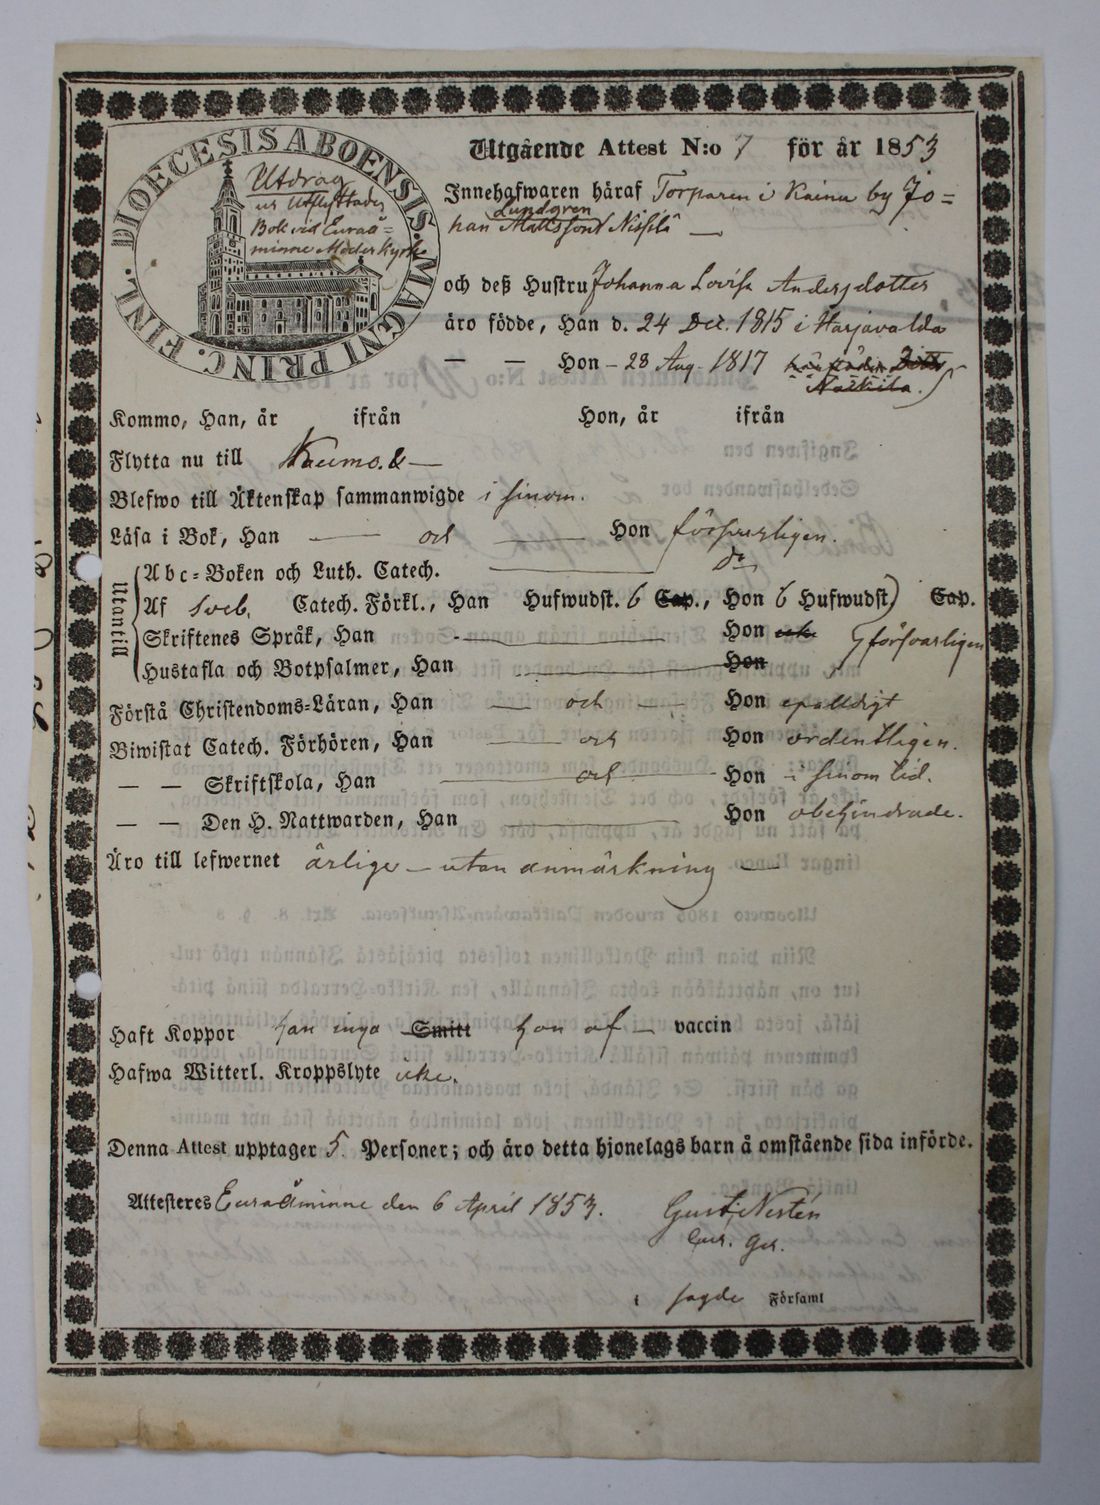 DIOECESIS ABOENSIS. MAGNI PRINC. FINL.
Utdrag
ur Utflyttades
Bok vid Euraå=
minne Moderkyrka
Utgående Attest N:o 7 för år 1853
Innehafwaren häraf Torparen i Kainu by Jo=
Lundgren
han Mattsson Nissilä
och deß Hustru Johanna Lovisa Andersdotter
äro födde, Han d. 24 Dec. 1815 i Harjavalda
— — Hon - 28 Aug. 1817
Nakkila.
Kommo, Han, år ifrån Hon, år ifrån
Flytta nu till Raumo. —
Blefwo till Äktenskap sammanwigde i sinom.
Läsa i Bok, Han — och — Hon försvarligen.
do
Utantill
Abc-Boken och Luth. Catech.
Af Sveb. Catech. Förkl., Han Hufwudst. 6 Cap., Hon 6 Hufwudst) Cap.
Skriftenes Språk, Han — Hon försvarligen
Hustafla och Botpsalmer, Han — Hon
Förstå Christendoms-Läran, Han — och — Hon
Biwistat Catech. Förhören, Han — och Hon ordentligen.
— — Skriftskola, Han — och — Hon i sinom tid.
— — Den H. Nattwarden, Han — Hon obehindrade.
Äro till lefwernet ärlige — utan anmärkning —
Haft Koppor han inga Smitt hon af — vaccin
Hafwa Witterl. Kroppslyte icke.
Denna Attest upptager 5. Personer; och äro detta hjonelags barn å omstående sida införde.
Attesteres Euraåminne den 6 April 1853.
Gust. Nestén
i sagde Församl